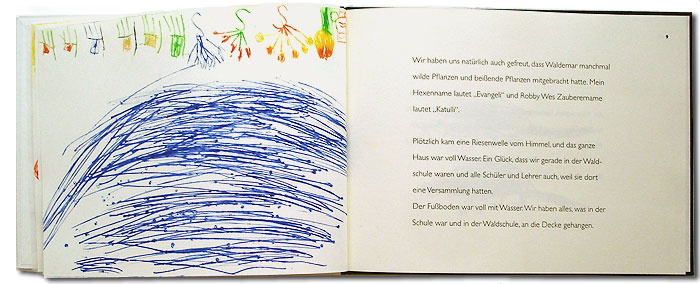 9
Wir haben uns natürlich auch gefreut, dass Waldemar manchmal
wilde Pflanzen und beißende Pflanzen mitgebracht hatte. Mein
Hexenname lautet „Evangeli“ und Robby Wes Zauberername
lautet „Katulli“.
Plötzlich kam eine Riesenwelle vom Himmel, und das ganze
Haus war voll Wasser. Ein Glück, dass wir gerade in der Wald-
schule waren und alle Schüler und Lehrer auch, weil sie dort
eine Versammlung hatten.
Der Fußboden war voll mit Wasser. Wir haben alles, was in der
Schule war und in der Waldschule, an die Decke gehangen.